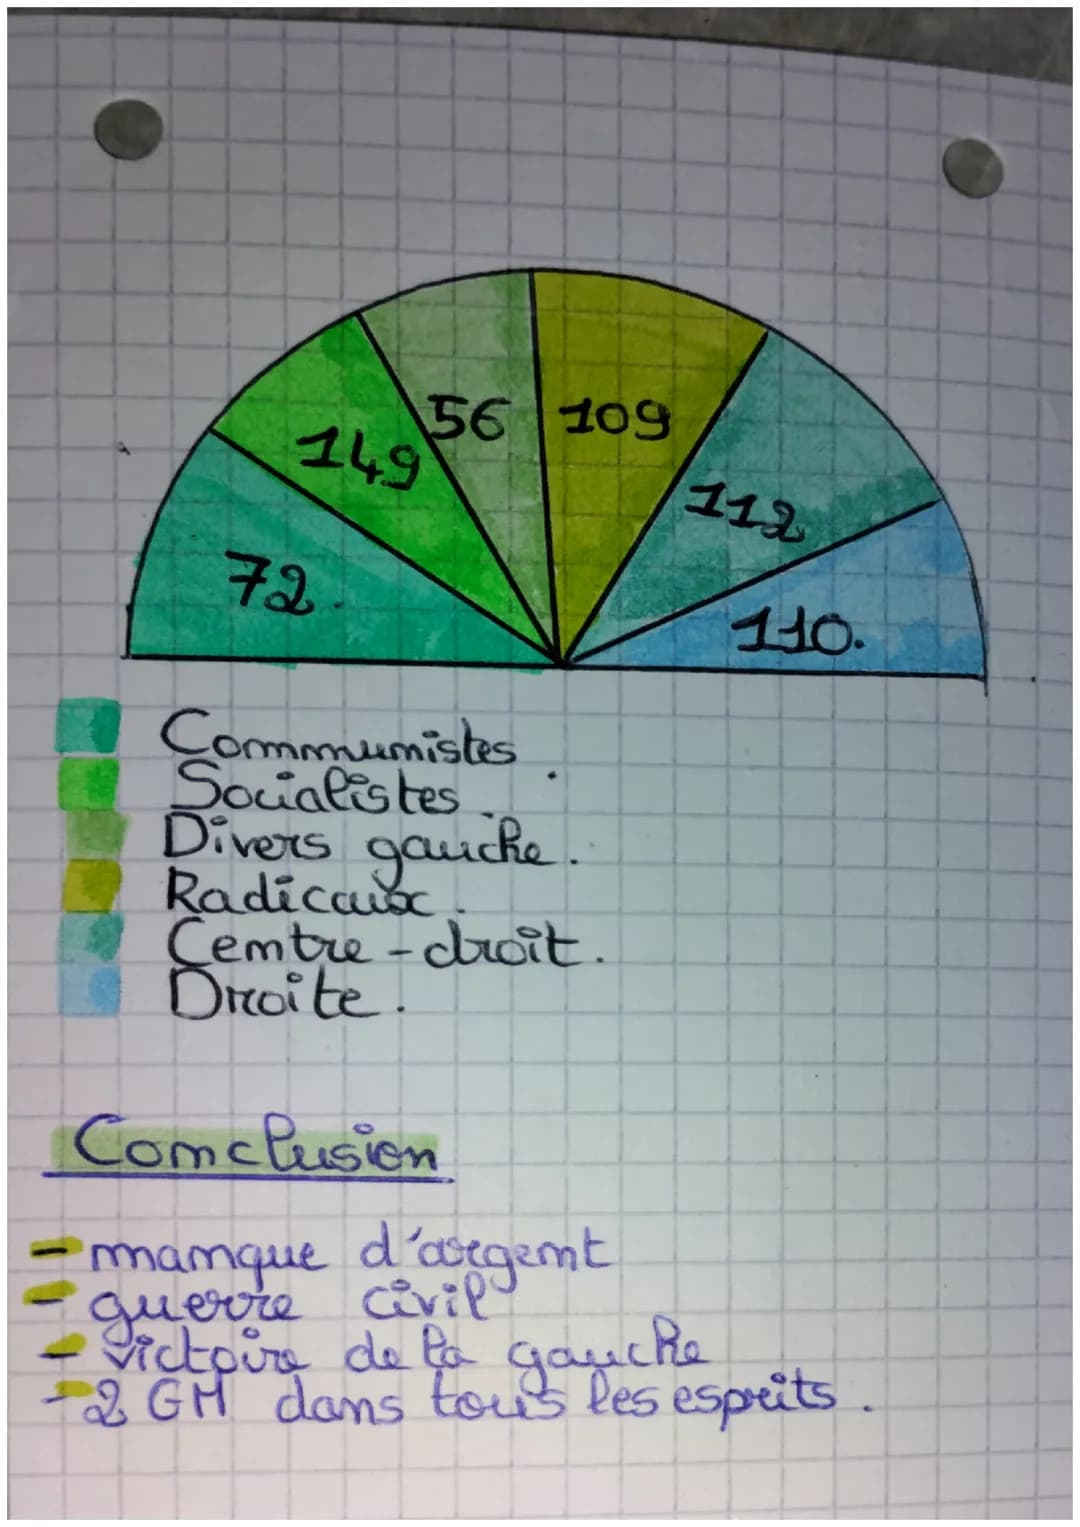 56 109
149
112
72.
110.
Communistes
Socialistes.
Divers gauche.
Radicaux.
Centre-droit.
Droite.
Conclusion
- manque d'argent
- guerre civil
- victoire de la gauche
- 2 GM dans tous les esprits.